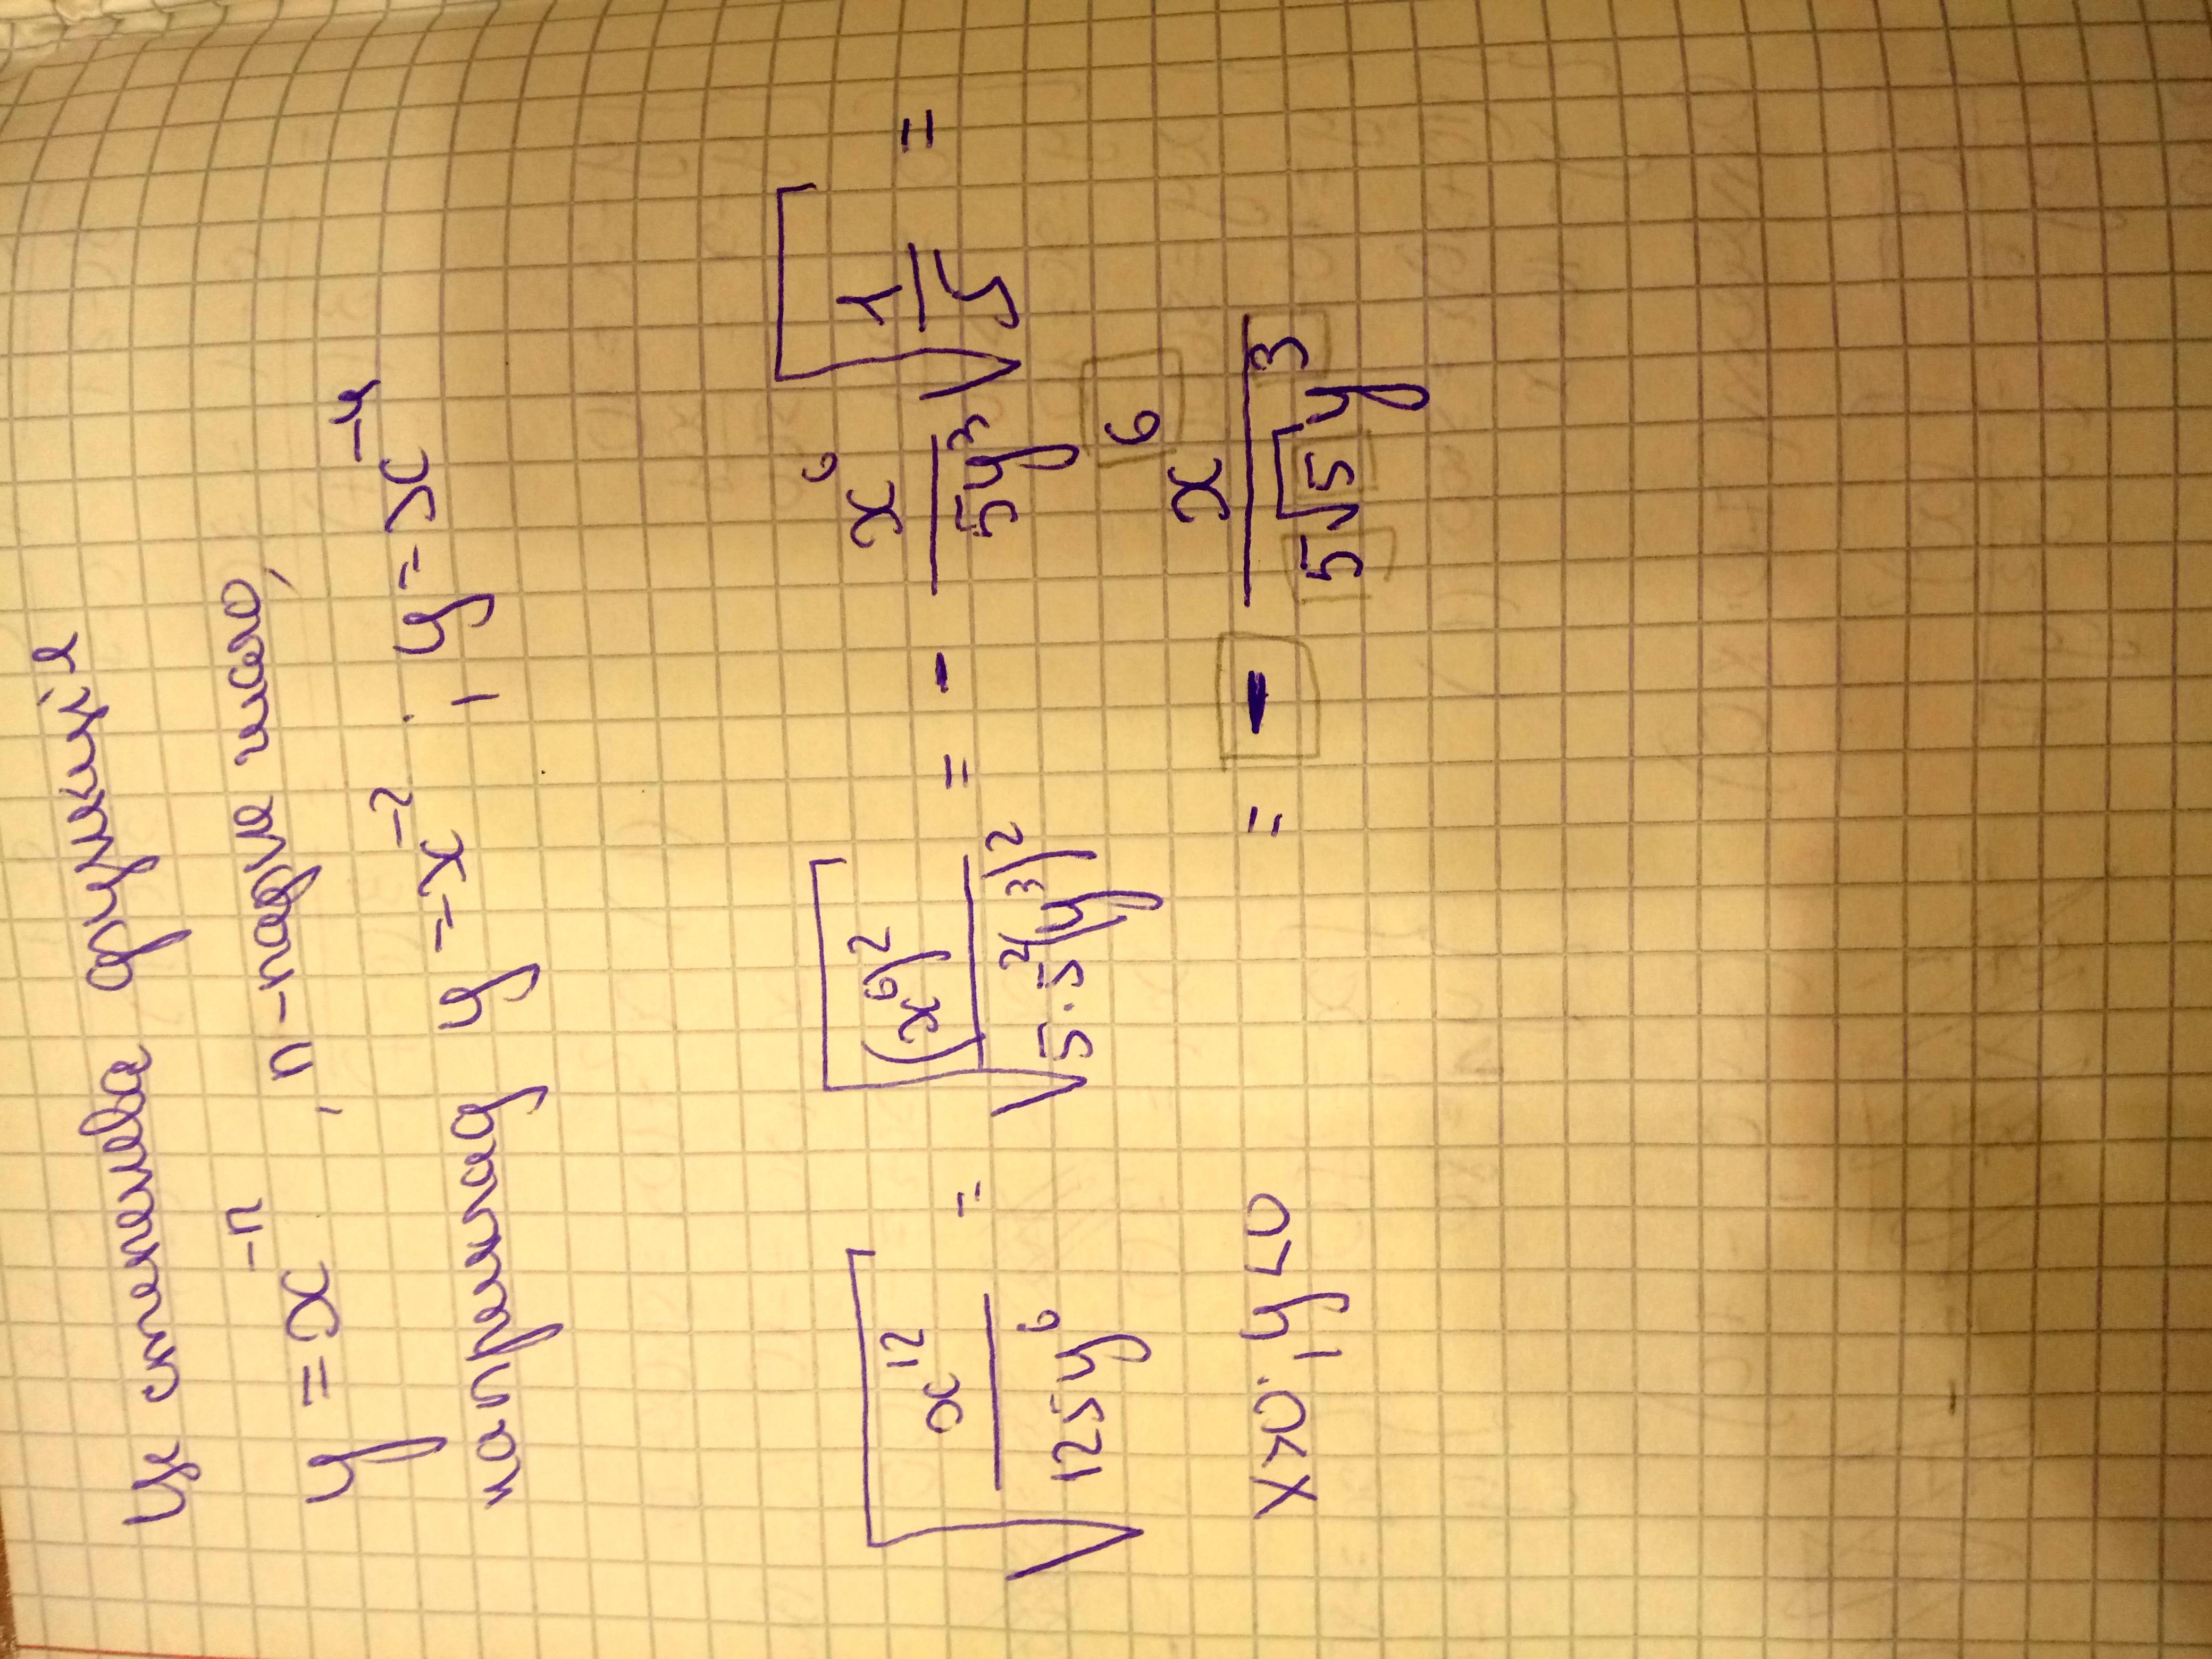 Це степенева функція
y = x^-n, n - парне число,
наприклад y = x^-2; y = x^-4
√(x^12 / 125y^6) = √((x^6)^2 / 5·5^2(y^3)^2) = - x^6 / 5y^3 √(1/5) =
x>0; y<0 = - x^6 / 5√5 y^3